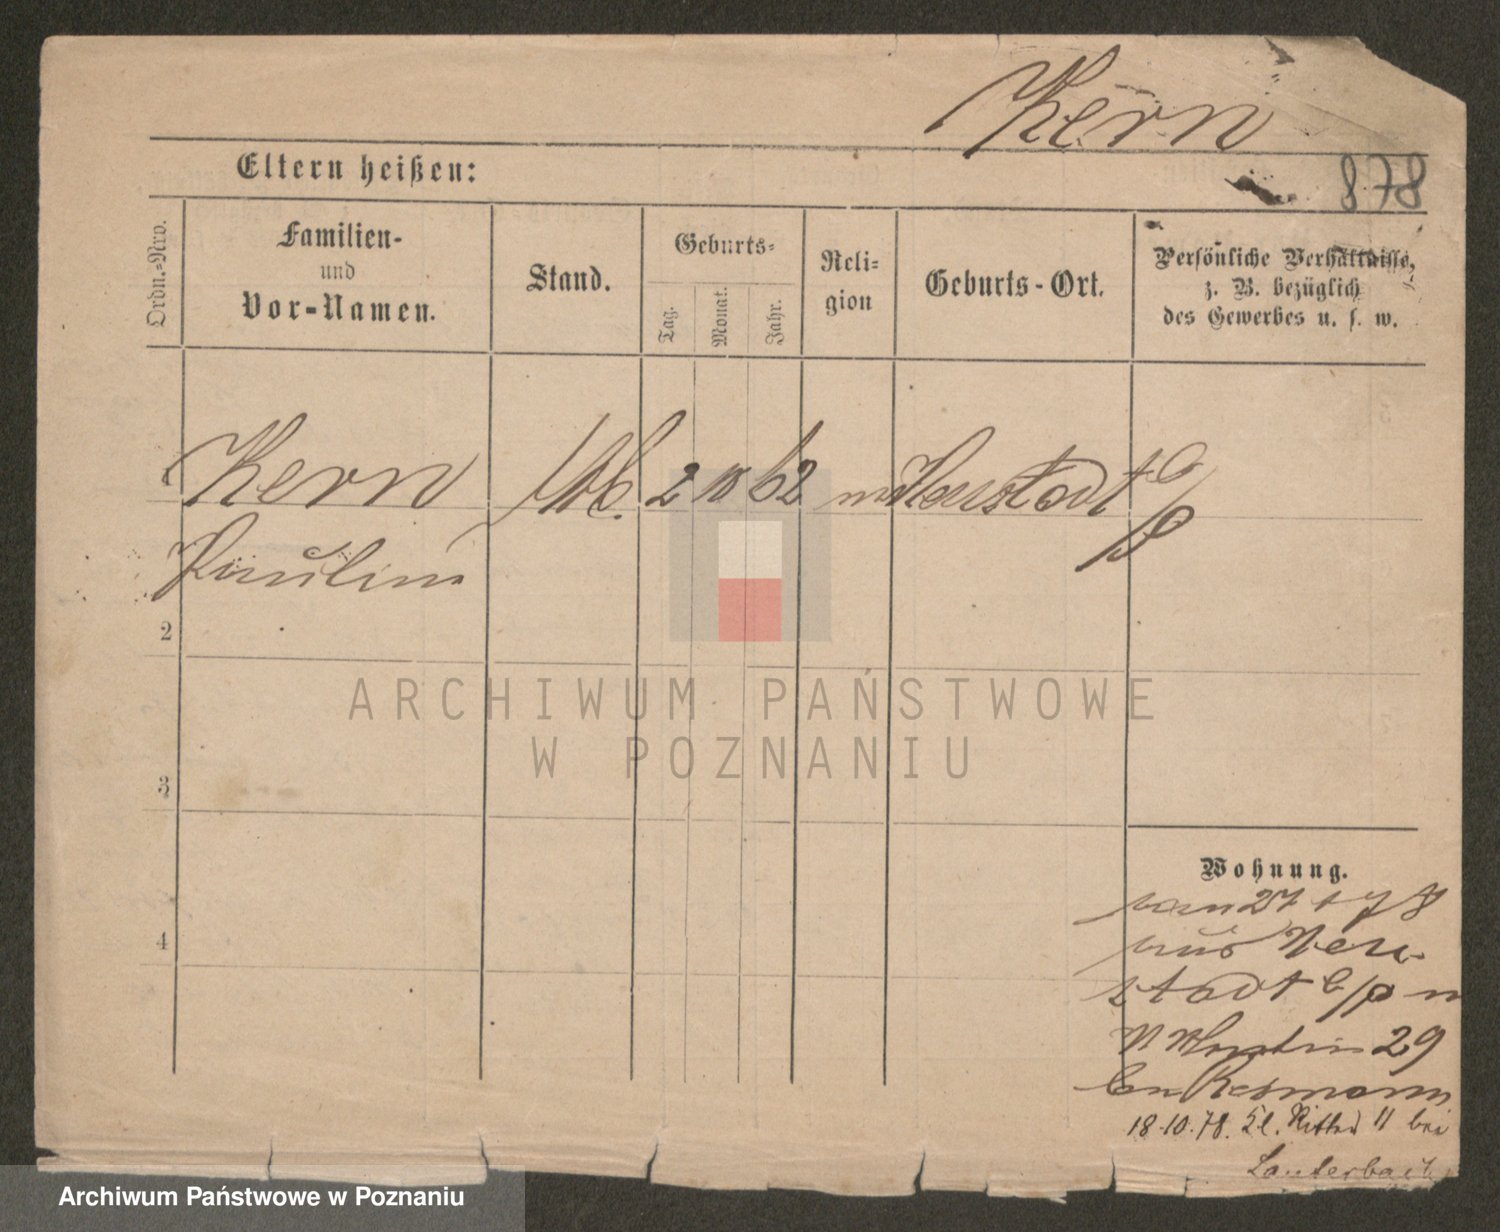 Kern
Eltern heißen:
878
Ordn.=Nro.
Familien-
und
Vor-Namen.
Stand.
Geburts-
Tag.
Monat.
Jahr.
Reli-
gion
Geburts-Ort.
Persönliche Verhältnisse,
z. B. bezüglich
des Gewerbes u. s. w.
1
Kern 2 10 62 Neustadt b/p
Paulin
2
3
4
ARCHIWUM PAŃSTWOWE
W POZNANIU
Wohnung.
27 1 78
aus Neu-
stadt b/p n
29
18.10.78. Kl. Ritter 11 bei
Lauterbach
Archiwum Państwowe w Poznaniu